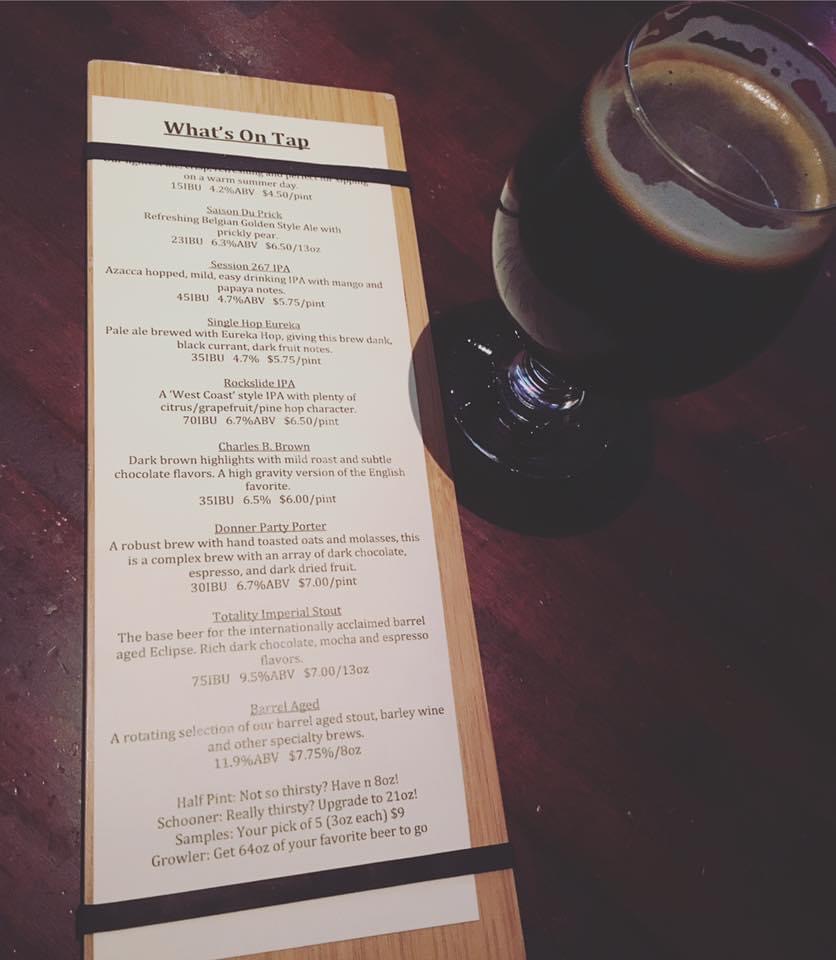 What's On Tap
refreshing and perfect for sipping
on a warm summer day.
15IBU 4.2%ABV $4.50/pint
Saison Du Prick
Refreshing Belgian Golden Style Ale with
prickly pear.
23IBU 6.3%ABV $6.50/13oz
Session 267 IPA
Azacca hopped, mild, easy drinking IPA with mango and
papaya notes.
45IBU 4.7%ABV $5.75/pint
Single Hop Eureka
Pale ale brewed with Eureka Hop, giving this brew dank,
black currant, dark fruit notes.
35IBU 4.7% $5.75/pint
Rockslide IPA
A 'West Coast' style IPA with plenty of
citrus/grapefruit/pine hop character.
70IBU 6.7%ABV $6.50/pint
Charles B. Brown
Dark brown highlights with mild roast and subtle
chocolate flavors. A high gravity version of the English
favorite.
35IBU 6.5% $6.00/pint
Donner Party Porter
A robust brew with hand toasted oats and molasses, this
is a complex brew with an array of dark chocolate,
espresso, and dark dried fruit.
30IBU 6.7%ABV $7.00/pint
Totality Imperial Stout
The base beer for the internationally acclaimed barrel
aged Eclipse. Rich dark chocolate, mocha and espresso
flavors.
75IBU 9.5%ABV $7.00/13oz
Barrel Aged
A rotating selection of our barrel aged stout, barley wine
and other specialty brews.
11.9%ABV $7.75%/8oz
Half Pint: Not so thirsty? Have n 8oz!
Schooner: Really thirsty? Upgrade to 21oz!
Samples: Your pick of 5 (3oz each) $9
Growler: Get 64oz of your favorite beer to go